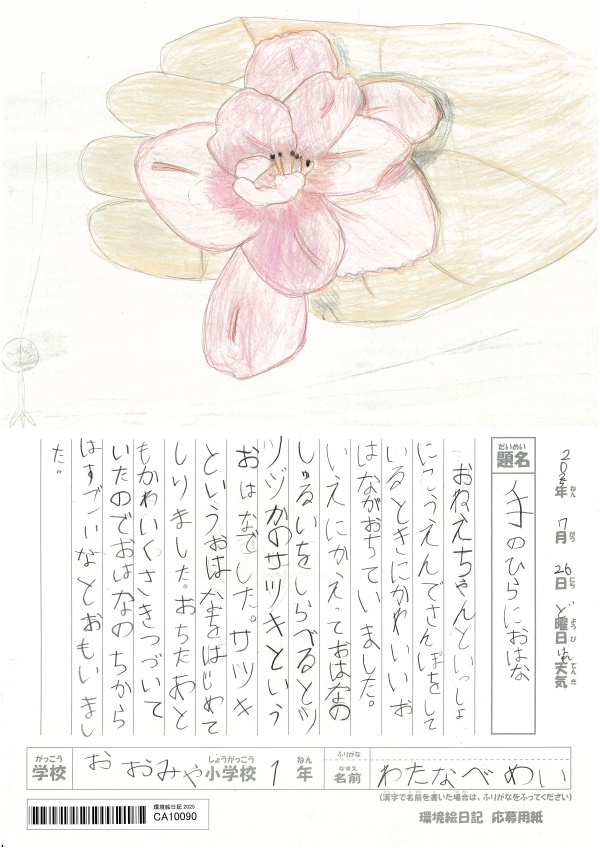 2025年 7月 26日 ど曜日 はれ天気
ねん がつ にち ようび てんき
だいめい
題名
手のひらにおはな
おねえちゃんといっしょ
にこうえんでさんぽをして
いるときにかわいいお
はながおちていました。
いえにかえっておはなの
しゅるいをしらべるとツ
ツジかのサツキという
おはなでした。サツキ
というおはなをはじめて
しりました。おちたあと
もかわいくさきつづいて
いたのでおはなのちから
はすごいなとおもいまし
た。
がっこう しょうがっこう ねん
学校 おおみや小学校 1年
ふりがな
なまえ
名前 わたなべめい
(漢字で名前を書いた場合は、ふりがなをふってください)
環境絵日記 2025
CA10090
環境絵日記 応募用紙